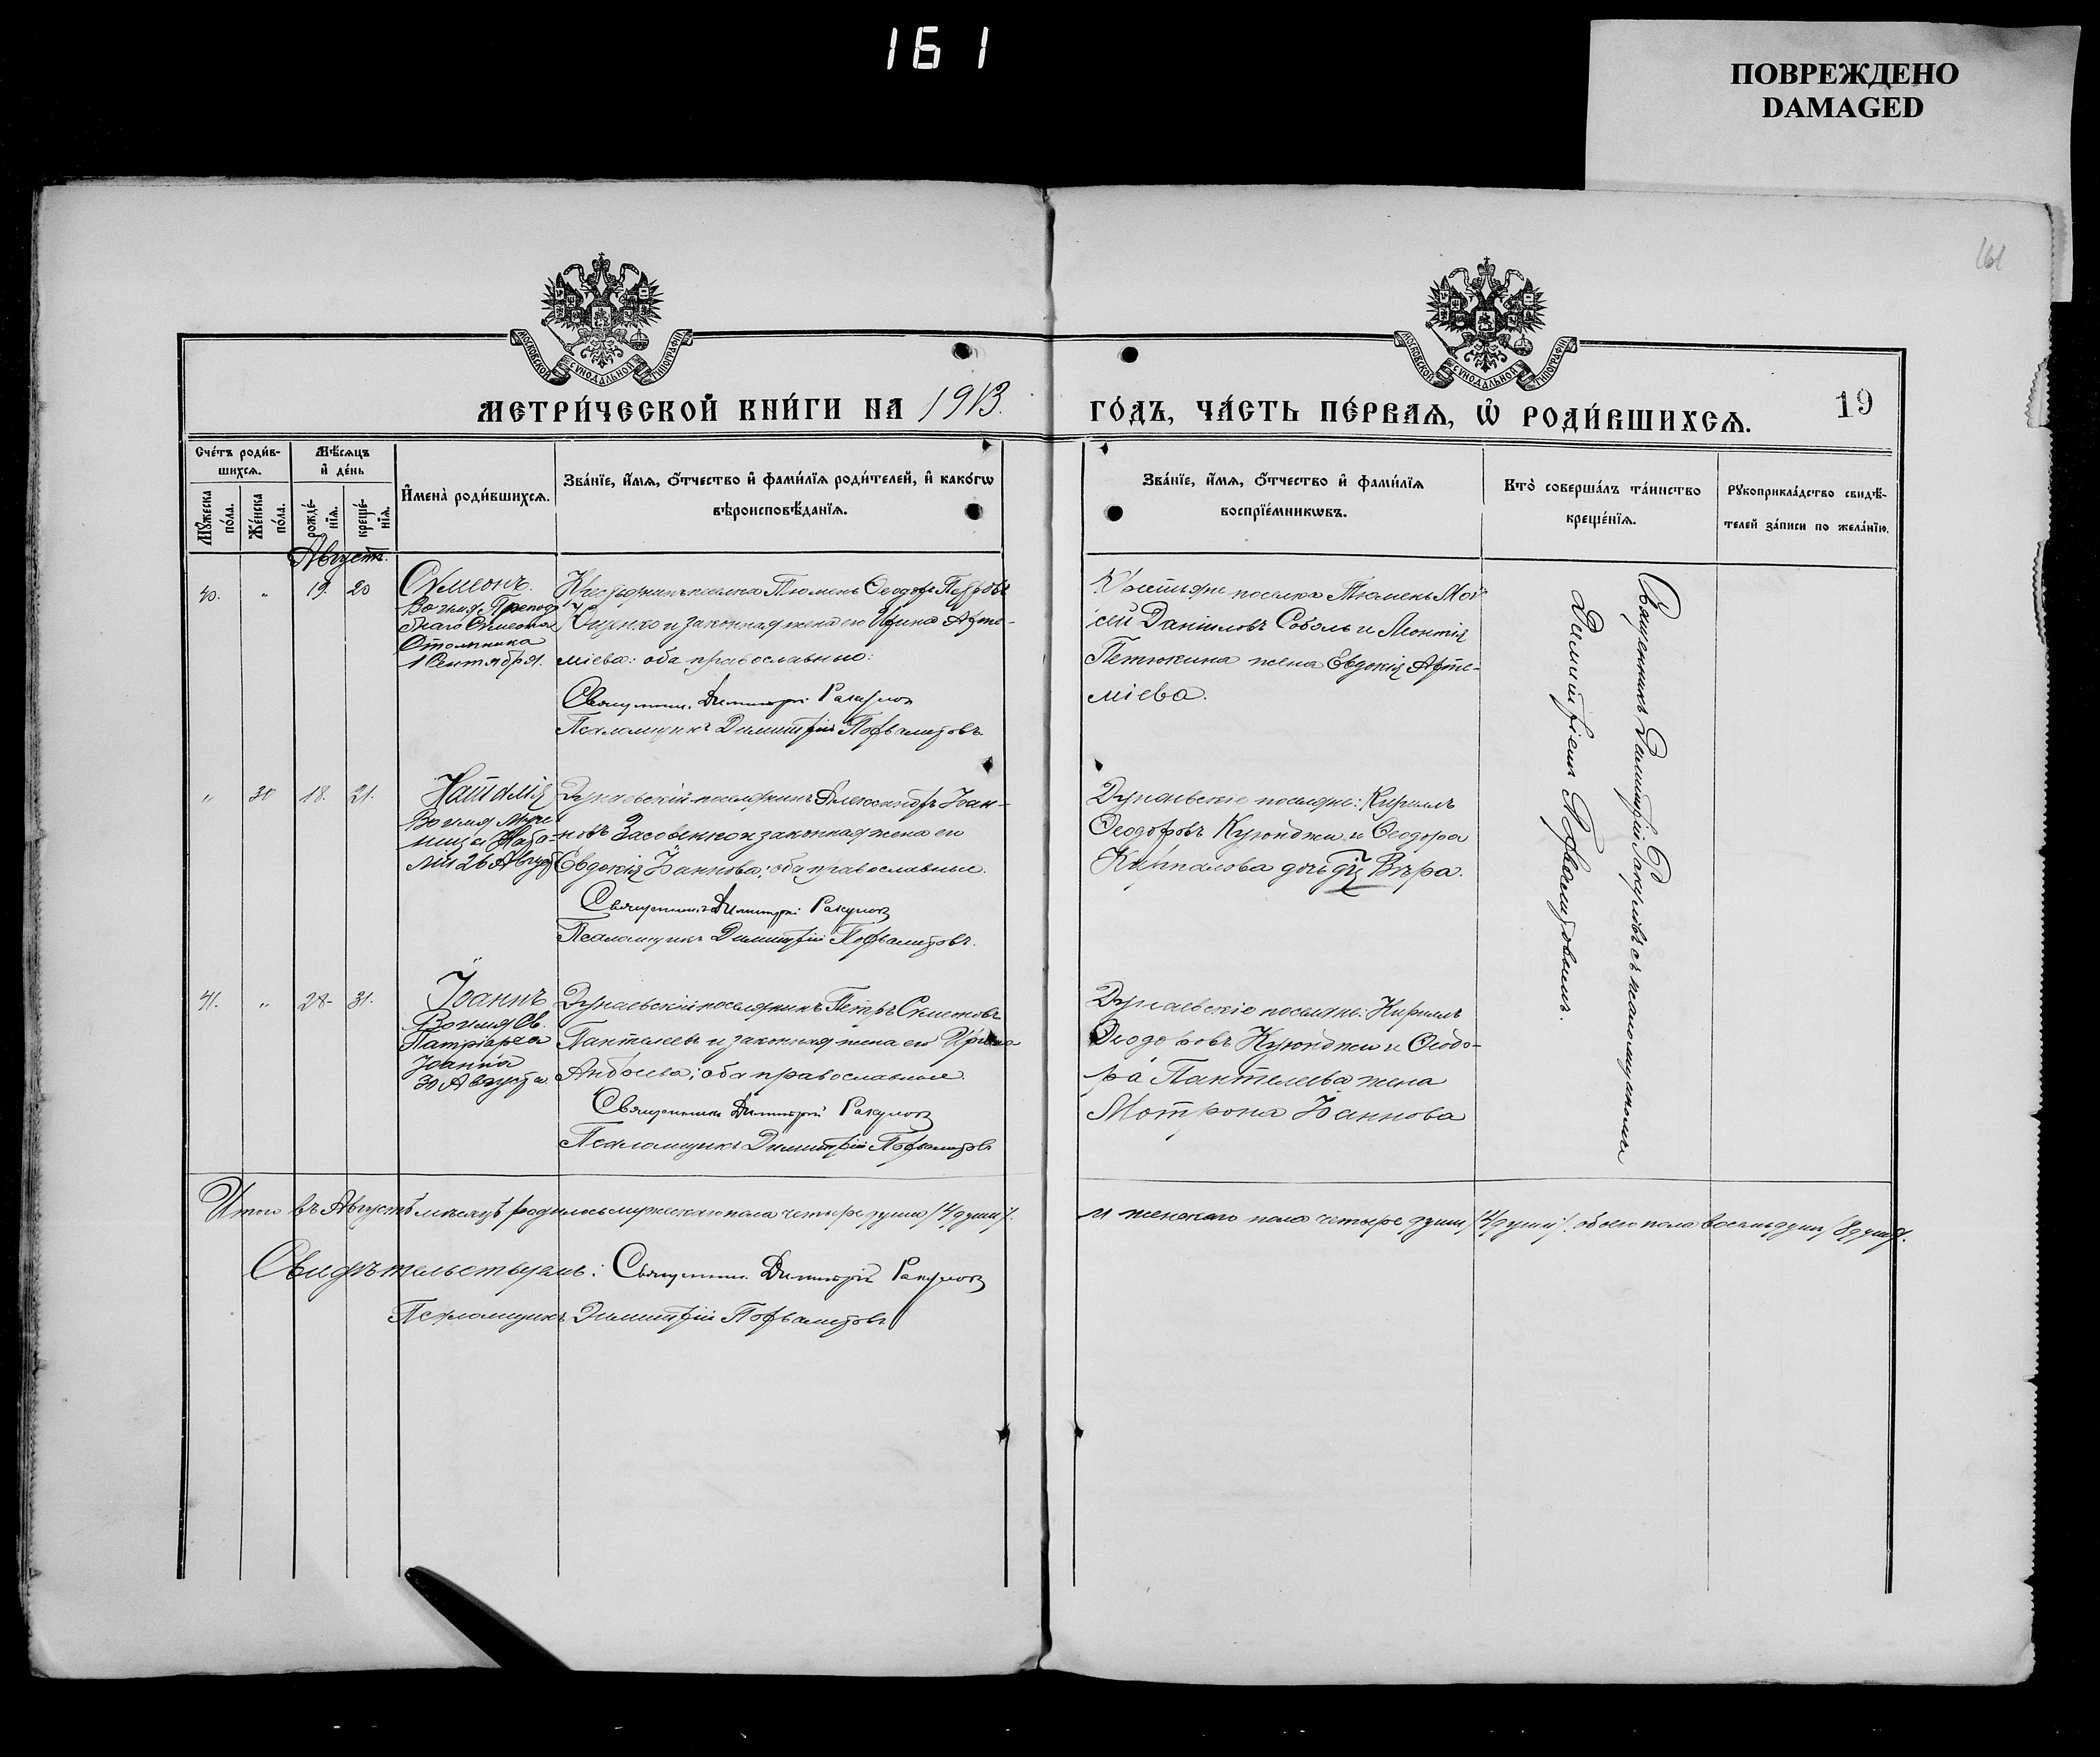 161
ПОВРЕЖДЕНО
DAMAGED
161
МОСКОВСКОЙ СѴНОДАЛЬНОЙ ТИПОГРАФІИ
МОСКОВСКОЙ СѴНОДАЛЬНОЙ ТИПОГРАФІИ
МЕТРИ́ЧЕСКОЙ КНИ́ГИ НА 1913.
ГО́ДЪ, ЧА́СТЬ ПЕ́РВАѦ, Ѡ҆ РОДИ́ВШИХСѦ.
19
Сче́тъ роди́в-
шихсѧ.
Мꙋ́жеска
по́ла.
Же́нска
по́ла.
Мѣ́сѧцъ
и҆ де́нь
рожде́-
нїѧ.
креще́-
нїѧ.
И҆мена̀ роди́вшихсѧ.
Зва́нїе, и҆́мѧ, ѻ҆́тчество и҆ фами́лїѧ роди́телей, и҆ како́гѡ
вѣроисповѣ́данїѧ.
Зва́нїе, и҆́мѧ, ѻ҆́тчество и҆ фами́лїѧ
воспрїе́мникѡвъ.
Кто̀ соверша́лъ та́инство
креще́нїѧ.
Рꙋкоприкла́дство свидѣ́-
телей за́писи по жела́нїю.
Августъ.
40. " 19. 20
Симеонъ.
Во имя Препод
бнаго Симеона
Столпника
1 Сентября.
поселка Тюмень Ѳеодоръ Петровъ
и законная жена его Ирина Арте-
міева: оба православные:
Священник Димитрій Ракулов
Псаломщикъ Димитрій
Крестьяне поселка Тюмень Мой
сей Даніиловъ Соболь и Леонтія
Петюкина жена Евдокія Арте-
міева.
Священникъ Димитрій Ракуловъ съ псаломщикомъ
Димитріемъ
" 30 18. 21.
Наталія
Во имя муче
ницы Ната-
ліи 26 Августа
Дунаевскій поселянинъ Александръ Іоан-
новъ Засовенко и законная жена его
Евдокія Іоаннова; оба православные.
Священникъ Димитрій Ракулов
Псаломщикъ Димитрій
Дунаевскіе поселяне: Кириллъ
Ѳеодоровъ Куюнджи и Ѳеодора
дочь дѣ Вѣра.
41. " 28- 31.
Іоаннъ
Во имя Св.
Патріарха
Іоанна
30 Августа.
Дунаевскій поселянинъ Петръ Симеоновъ
Пантелеевъ и законная жена его Ирина
оба православные.
Священникъ Димитрій Ракулов
Псаломщикъ Димитрій
Дунаевскіе поселяне: Кириллъ
Ѳеодоровъ Куюнджи и Ѳеодо-
ра Пантелеева жена
Мотрона Іаннова
Итого въ Августѣ мѣсяцѣ родилось мужескаго пола четыре души /4 души/.
и женскаго пола четыре души /4 души/. обоего пола восемь душъ /8 душъ/.
Свидѣтельствуемъ: Священник Димитрій Ракулов
Псаломщикъ Димитрій